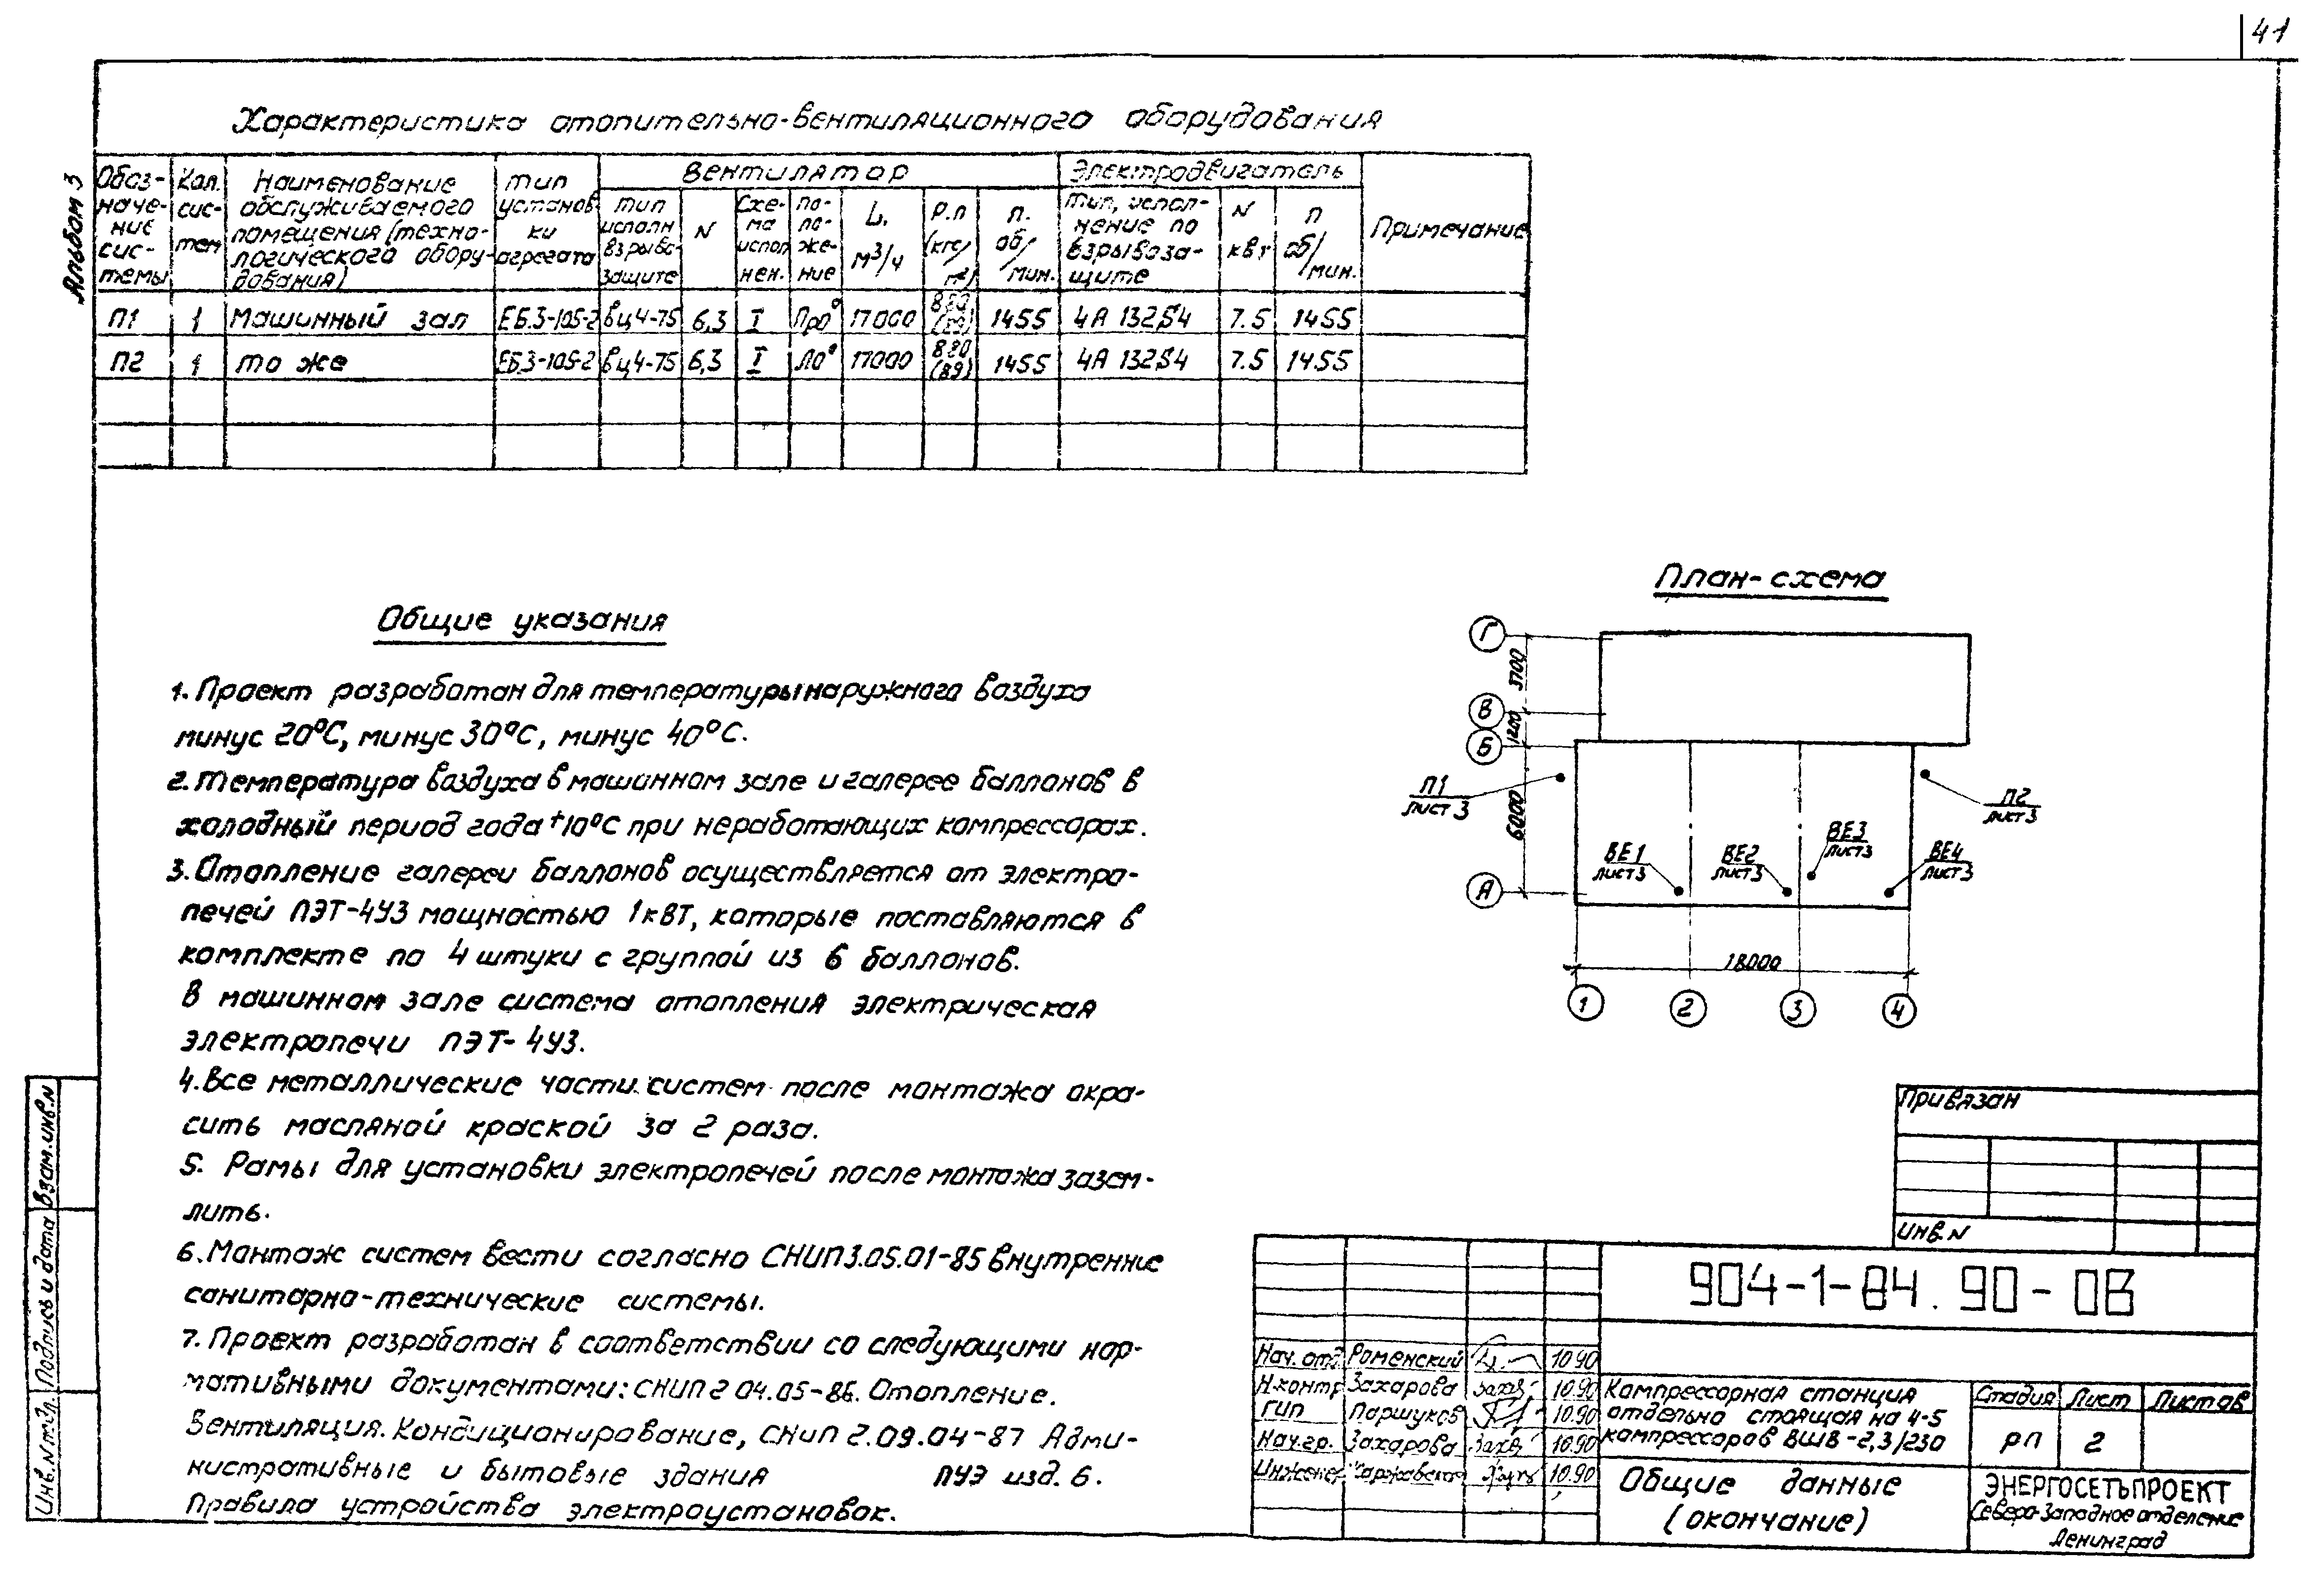 41
Альбом 3
Характеристика отопительно-вентиляционного оборудования
Обоз-
наче-
ние
сис-
темы
Кол.
сис-
тем
Наименование
обслуживаемого
помещения (техно-
логического обору-
дования)
тип
установ-
ки
агрегата
Вентилятор
тип
исполн
взрыво-
защите
N
Схе-
ма
испол
нен.
по-
ло-
же-
ние
L,
м³/ч
Р.п
(кгс/
м²)
п.
об/
мин.
Электродвигатель
Тип, испол-
нение по
взрывоза-
щите
N
кВт
п
об/
мин.
Примечание
П1 1 Машинный зал Е6.3-105-2 вц4-75 6,3 I Про° 17000 1455 4А 132S4 7.5 1455
П2 1 то же Е6.3-105-2 вц4-75 6,3 I Ло° 17000 880 (89) 1455 4А 132S4 7.5 1455
Общие указания
1. Проект разработан для температуры наружного воздуха
минус 20°С, минус 30°С, минус 40°С.
2. Температура воздуха в машинном зале и галерее баллонов в
холодный период года +10°С при неработающих компрессорах.
3. Отопление галереи баллонов осуществляется от электро-
печей ПЭТ-4У3 мощностью 1кВТ, которые поставляются в
комплекте по 4 штуки с группой из 6 баллонов.
В машинном зале система отопления электрическая
электропечи ПЭТ-4У3.
4. Все металлические части систем после монтажа окра-
сить масляной краской за 2 раза.
5. Рамы для установки электропечей после монтажа зазем-
лить.
6. Монтаж систем вести согласно СНИП 3.05.01-85 внутренние
санитарно-технические системы.
7. Проект разработан в соответствии со следующими нор-
мативными документами: СНИП 2 04.05-86. Отопление.
Вентиляция. Кондиционирование, СНиП 2.09.04-87 Адми-
нистративные и бытовые здания ПУЭ изд. 6.
Правила устройства электроустановок.
План-схема
Г
3700
В
1200
Б
6000
А
П1
лист 3
П2
лист 3
ВЕ1
лист 3
ВЕ2
лист 3
ВЕ3
лист 3
ВЕ4
лист 3
18000
1 2 3 4
Привязан
Инв. N
904-1-84.90-ОВ
Нач. отд Роменский 10.90
Н.контр Захарова Захв 10.90
ГИП Паршуков 10.90
Нач.гр. Захарова Захв 10.90
Инженер 10.90
Компрессорная станция
отдельно стоящая на 4-5
компрессоров ВШВ-2,3/230
Стадия Лист Листов
РП 2
Общие данные
(окончание)
ЭНЕРГОСЕТЬПРОЕКТ
Северо-Западное отделение
Ленинград
Взам. инв. N
Подпись и дата
Инв. N подл.